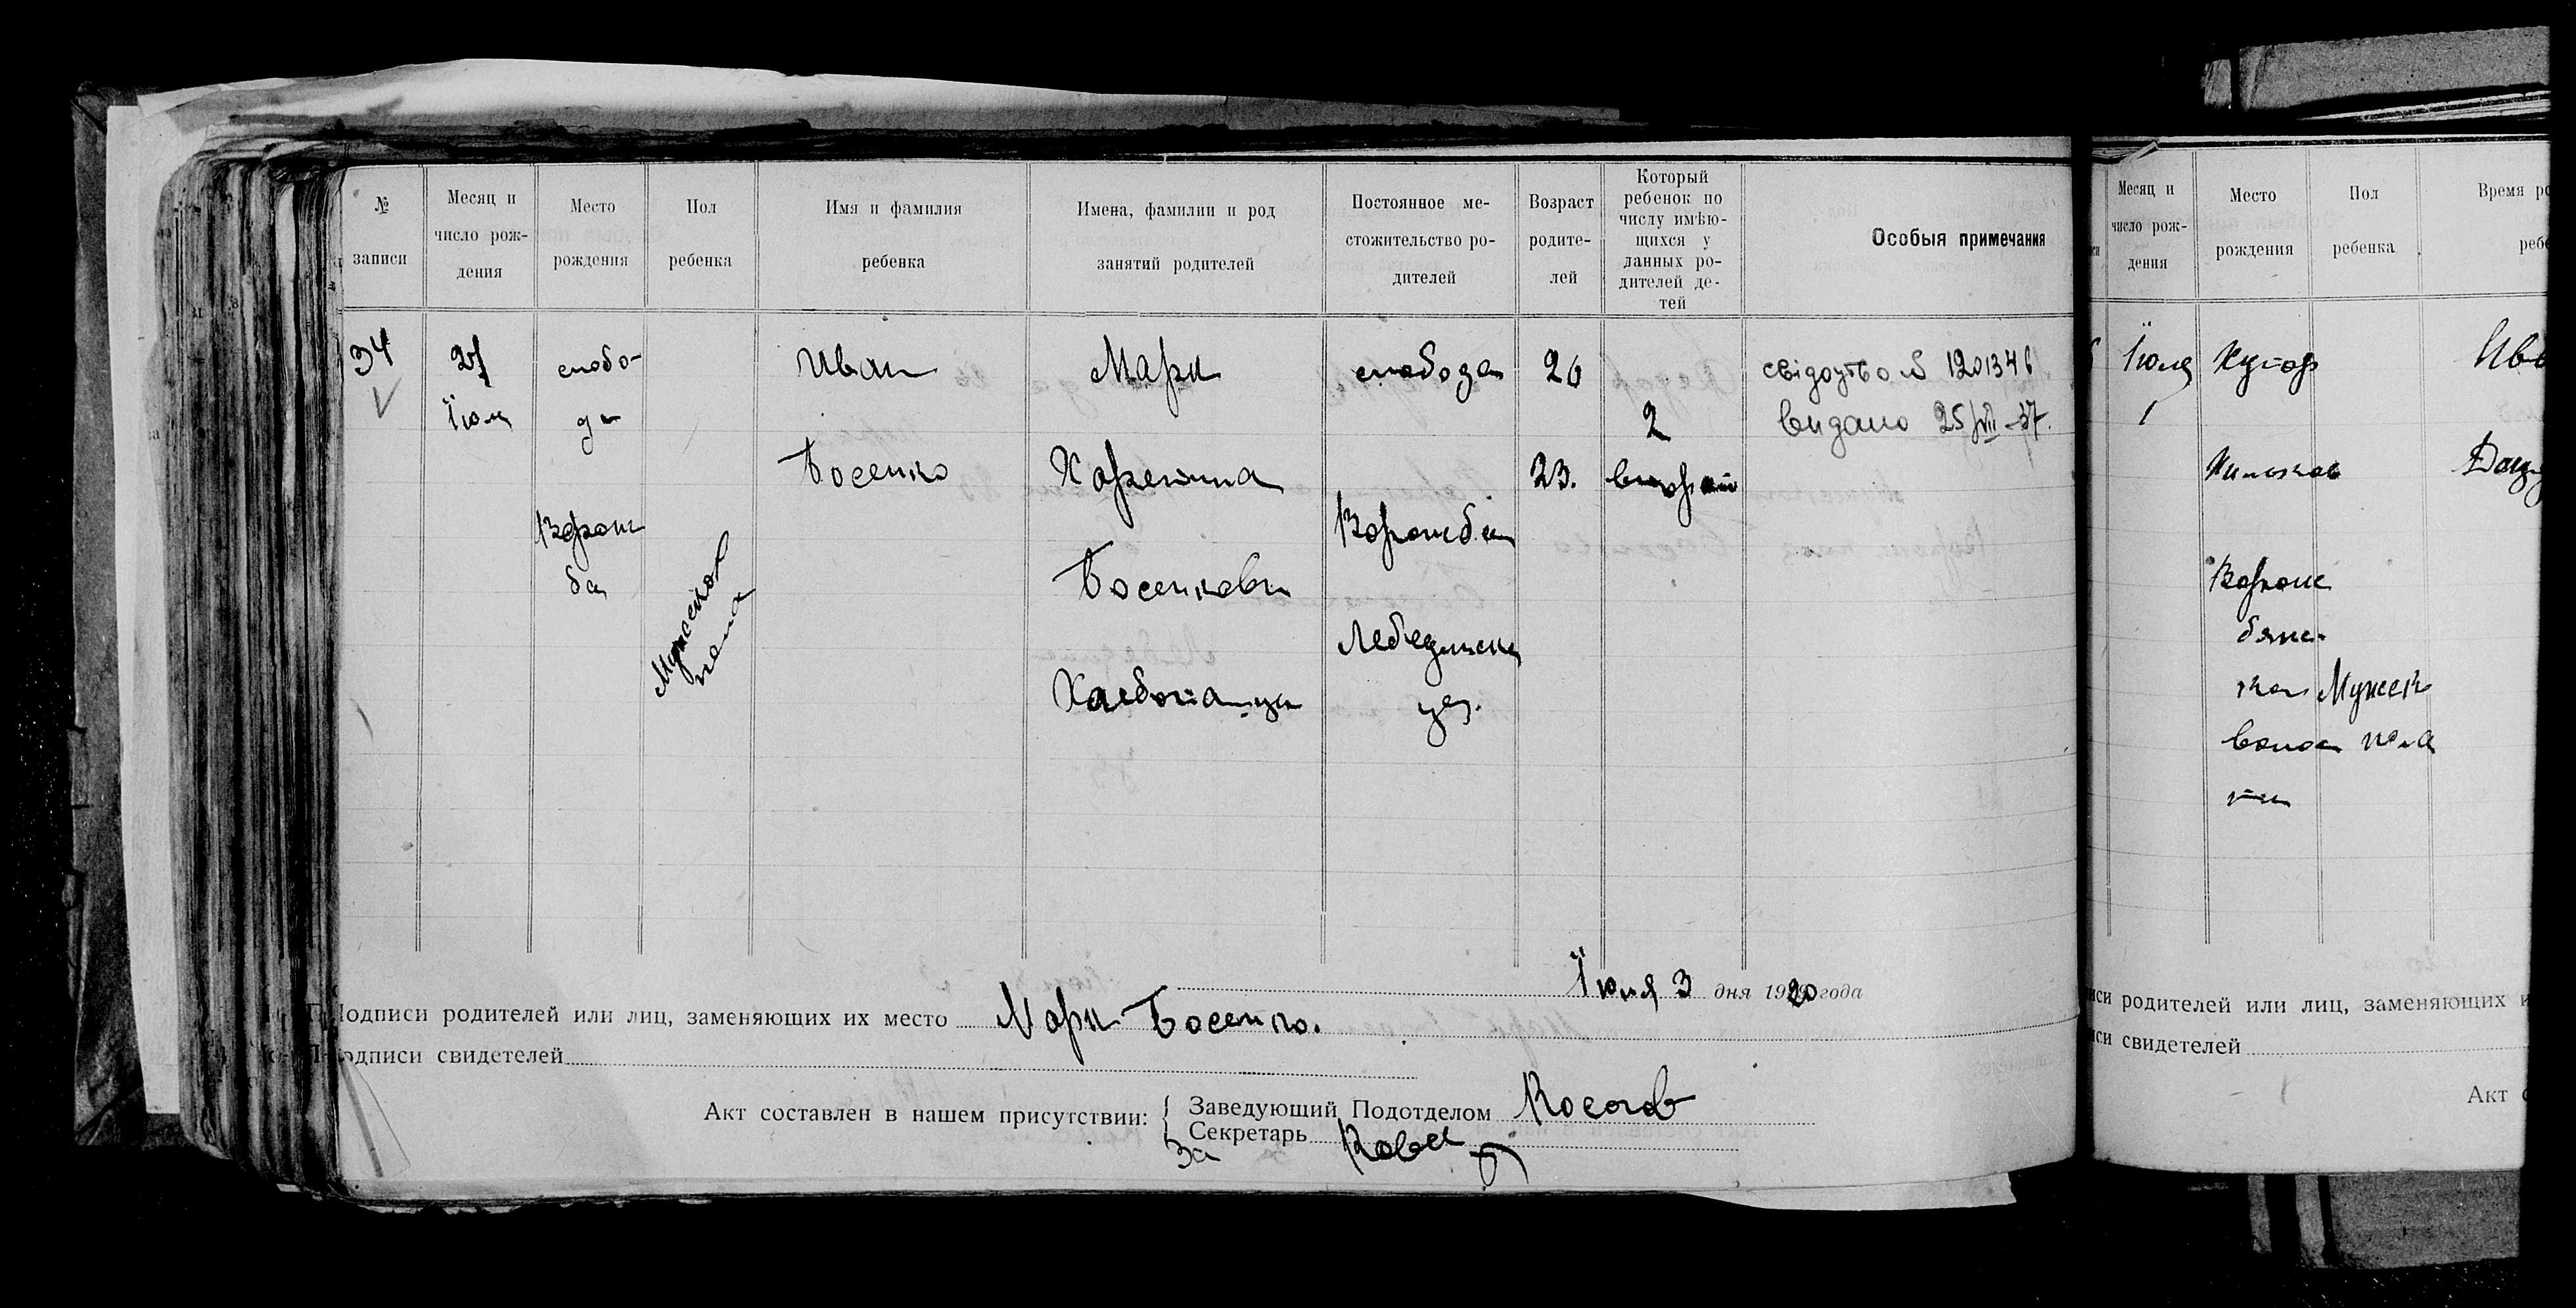 № записи
Месяц и число рождения
Место рождения
Пол ребенка
Имя и фамилия ребенка
Имена, фамилии и род занятий родителей
Постоянное местожительство родителей
Возраст родителей
Который ребенок по числу имѣющихся у данных родителей детей
Особыя примечания
34
27
слобо-
да
Ворож
ба
Мужеског
пола
Иван
Босенко
Марк
Босенкови
Хлебопашци
слобода
Ворожба
Лебединск
уез.
26
23.
2
второй
свідоцтво № 1201346
видано 25/VII-37.
Июля 3 дня 1920 года
Подписи родителей или лиц, заменяющих их место Марк Босенко.
Подписи свидетелей
Акт составлен в нашем присутствии:
Заведующий Подотделом
Секретарь
За
Месяц и число рождения
Место рождения
Пол ребенка
Июля
1
Хутор
Ворож
бянс-
кой
волос
ти
Мужск
пола
родителей или лиц, заменяющих
свидетелей
Акт